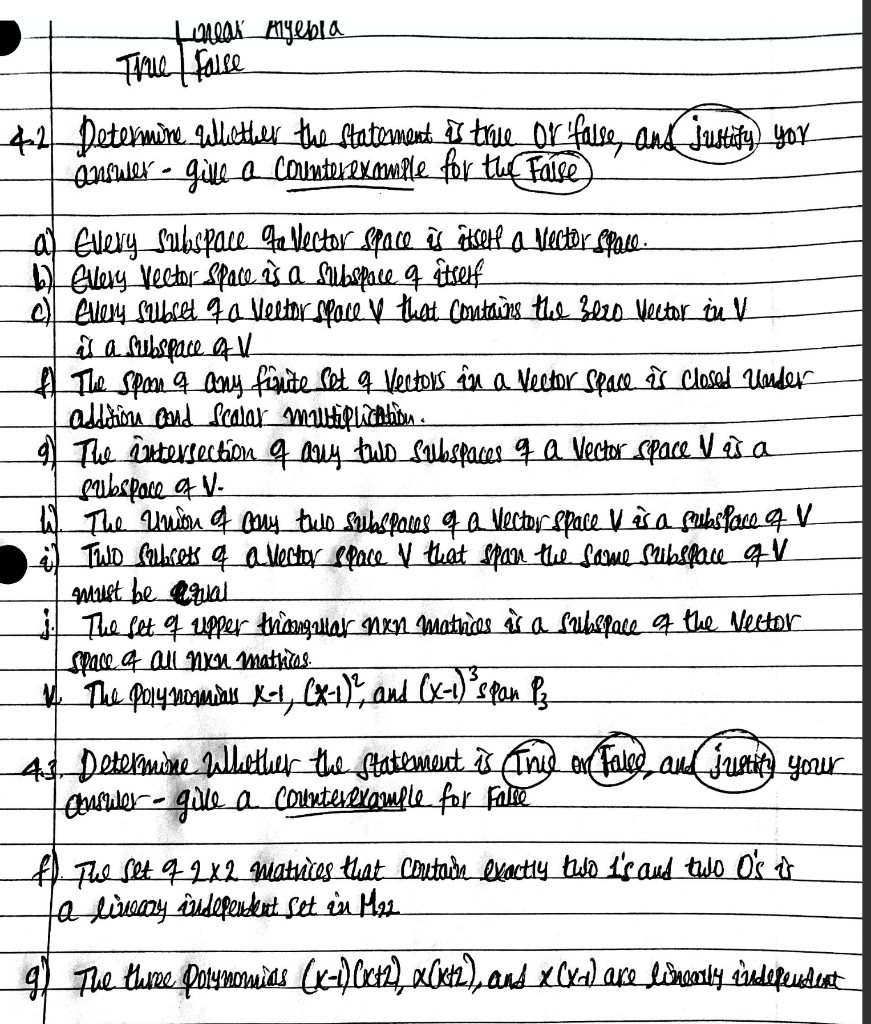 Linear Algebra
True | False
4.2 Determine whether the statement is true or false, and justify yor
answer - give a counterexample for the False
a) Every subspace of a vector space is itself a vector space.
b) Every vector space is a subspace of itself
c) Every subset of a vector space V that contains the zero vector in V
is a subspace of V
f) The span of any finite set of vectors in a vector space is closed under
addition and scalar multiplication.
g) The intersection of any two subspaces of a vector space V is a
subspace of V.
h). The union of any two subspaces of a vector space V is a subspace of V
i) Two subsets of a vector space V that span the same subspace of V
must be equal
j. The set of upper triangular nxn matrices is a subspace of the vector
space of all nxn matrices.
k. The polynomials x-1, (x-1)², and (x-1)³ span P₃
4.3. Determine whether the statement is True or False, and justify your
answer - give a counterexample for False
f) The set of 2x2 matrices that contain exactly two 1's and two 0's is
a lineary independent set in M₂₂
g) The three polynomials (x-1)(x+2), x(x+2), and x(x-1) are linearly independent